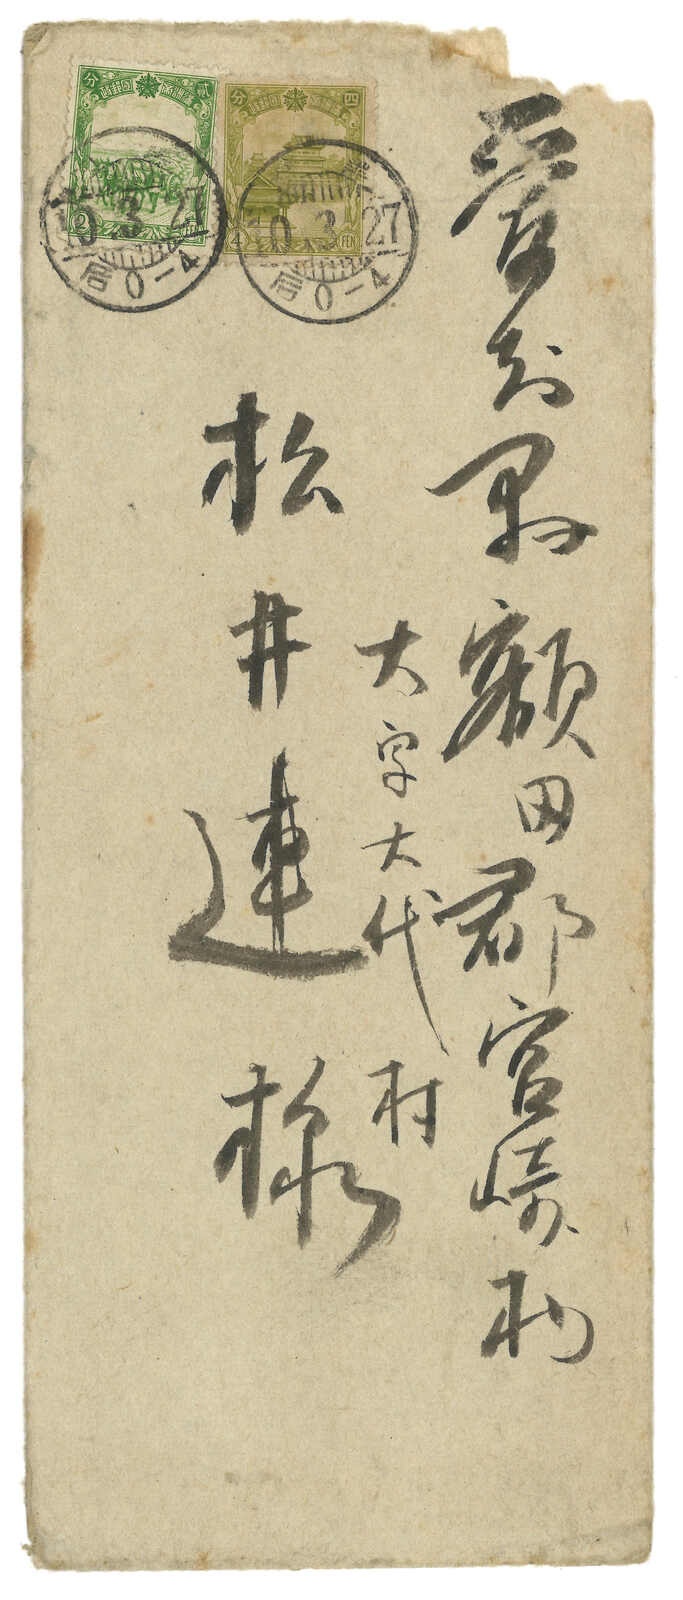 愛知県額田郡宮崎村
大字大代
村
松井連様
貳分
2
四分
4 FEN
10.3.27
后0-4
10.3.27
后0-4